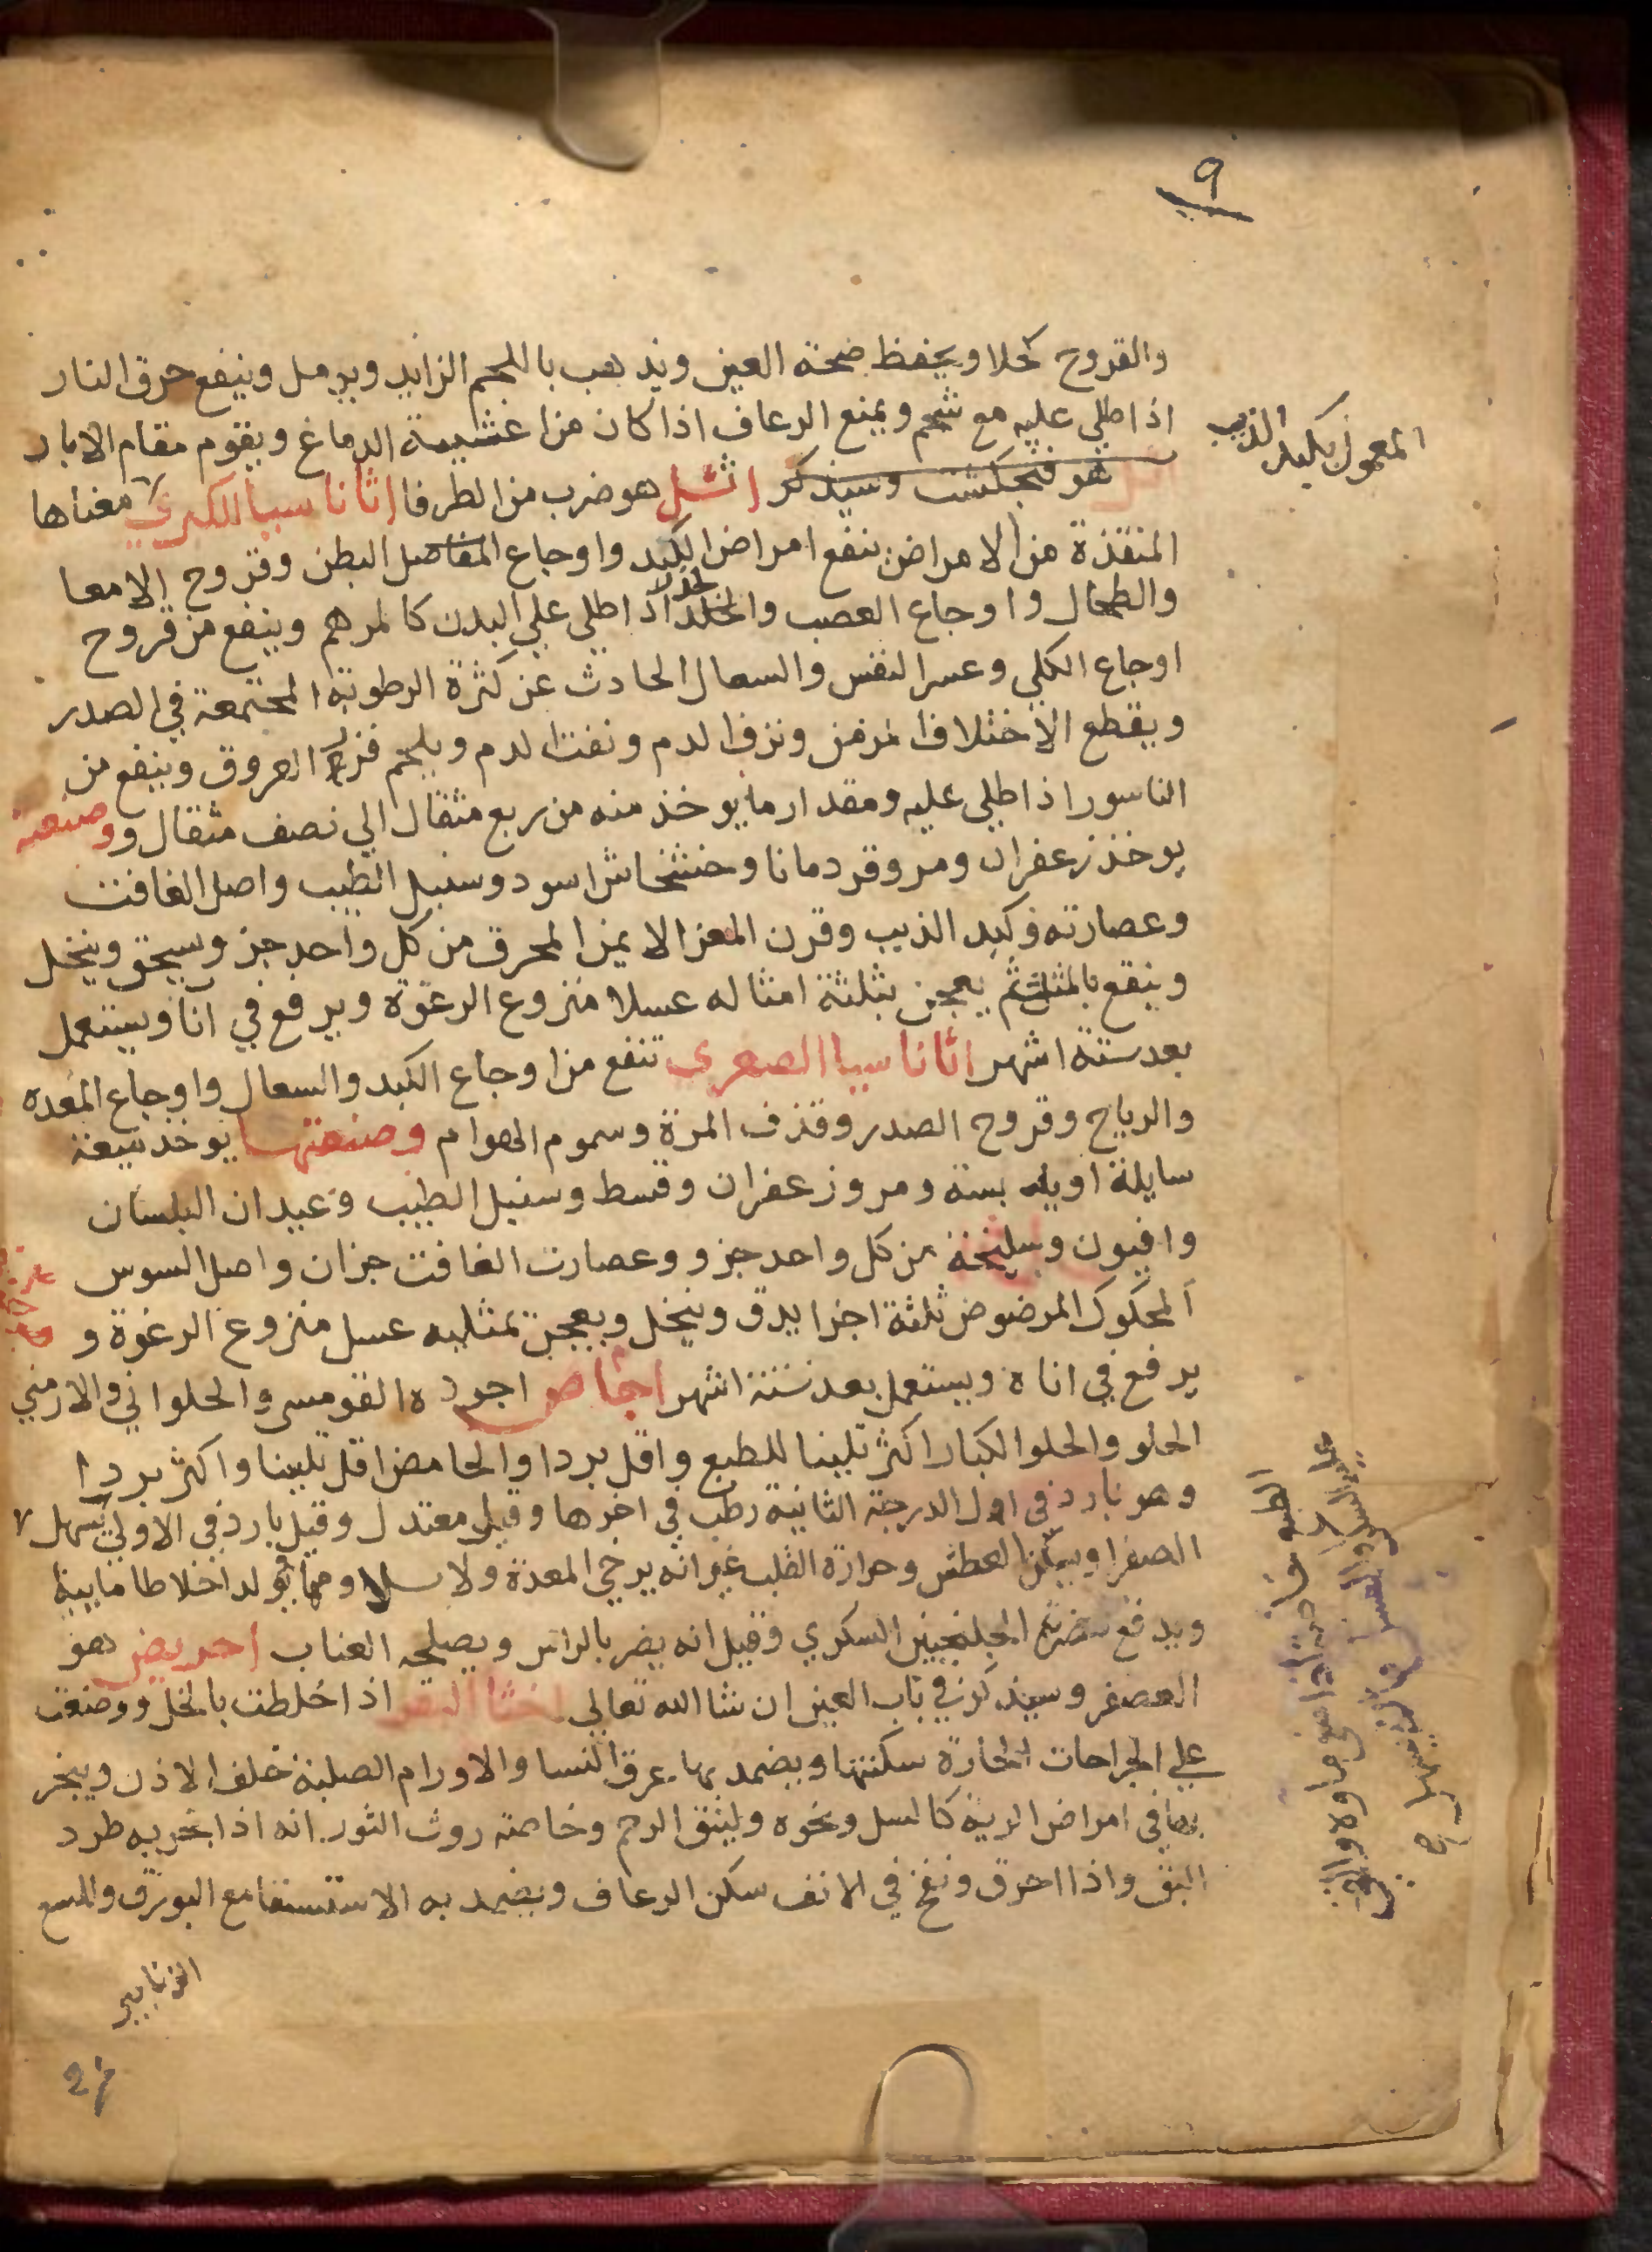 ٩
والقروح كحلا ويحفظ صحة العين ويذهب باللحم الزايد ويدمل وينفع حرق النار
اذا طلي عليه مع شحم ويمنع الرعاف اذا كان من اغشيية الدماغ ويقوم مقام الابار
هو فنجكشت وسيذكر اثل هو ضرب من الطرفا اثاناسيا الكبري معناها
المعمول بكبد الذيب
المنقذة من الامراض ينفع امراض الكبد واوجاع المفاصل البطن وقروح الامعا
والطحال واوجاع العصب والخلد اذا طلي علي البدن كالمرهم وينفع من قروح
اوجاع الكلي وعسر النفس والسعال الحادث عن كثرة الرطوبة المجتمعة في الصدر
ويقطع الاختلاف المزمن ونزف الدم ونفث الدم ويلحم العروق وينفع من
الناسور اذا طلي عليه ومقدار ما يوخذ منه من ربع مثقال الي نصف مثقال ووصنعة
يوخذ زعفران ومر وقردمانا وخشخاش اسود وسنبل الطيب واصل الغافت
وعصارته وكبد الذيب وقرن المعز الايمن المحرق من كل واحد جز ويسحق وينخل
وينقع بالمثلث ثم يعجن بثلثة امثاله عسلا منزوع الرغوة ويرفع في انا ويستعمل
بعد ستة اشهر اثاناسيا الصغرى تنفع من اوجاع الكبد والسعال واوجاع المعده
والرياح وقروح الصدر وقذف المرة وسموم الهوام وصنعتها يوخذ ميعة
سايلة او يابسة ومر وزعفران وقسط وسنبل الطيب وعيدان البلسان
وافيون وسليخة من كل واحد جزو وعصارت الغافت جزان واصل السوس
المحكوك المرضوض ثلثة اجزا يدق وينخل ويعجن بمثليه عسل منزوع الرغوة و
يرفع في اناة ويستعمل بعد ستة اشهر اجاص اجوده القومسي والحلواني والارمني
الحلو والحلو الكبار اكثر تليينا للطبع واقل بردا والحامض اقل تليينا واكثر بردا
وهو بارد في اول الدرجة الثانية رطب في اخرها وقيل معتدل وقيل بارد في الاولي يسهل
الصفرا ويسكن العطش وحرارة القلب غير انه يرخي المعدة ولا يولد اخلاطا مايية
ويدفع الجلنجبين السكري وقيل انه يضر بالراس ويصلحه العناب احريض هو
العصفر وسيذكر في باب العين ان شا الله تعالي اخثا البقر اذا خلطت بالخل ووضعت
علي الجراحات الحارة سكنتها ويضمد بها عرق النسا والاورام الصلبة خلف الاذن ويبخر
بها في امراض الرية كالسل ونحوه ولنتق الرحم وخاصة روث الثور انه اذا بخر به طرد
البق واذا احرق ونفخ في الانف سكن الرعاف ويضمد به الاستسقا مع البورق والسع
الزنابير